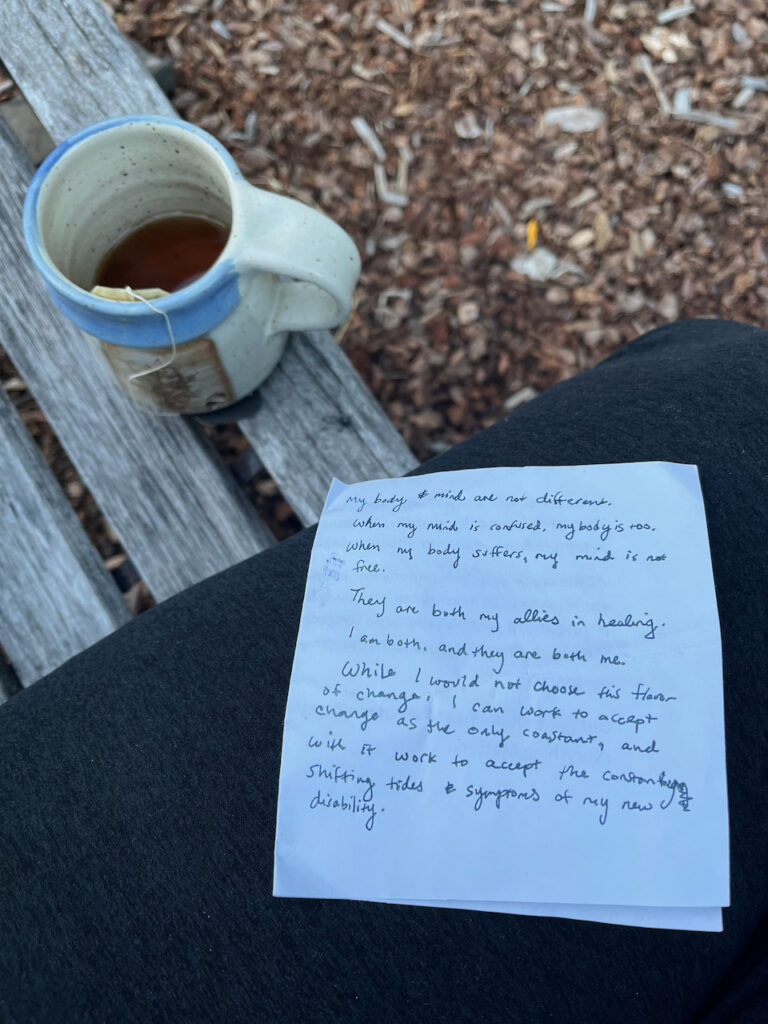 My body & mind are not different.
When my mind is confused, my body is too.
When my body suffers, my mind is not
free.
They are both my allies in healing.
I am both, and they are both me.
While I would not choose this flavor
of change, I can work to accept
change as the only constant, and
with it work to accept the constantly
shifting tides & symptoms of my new
disability.